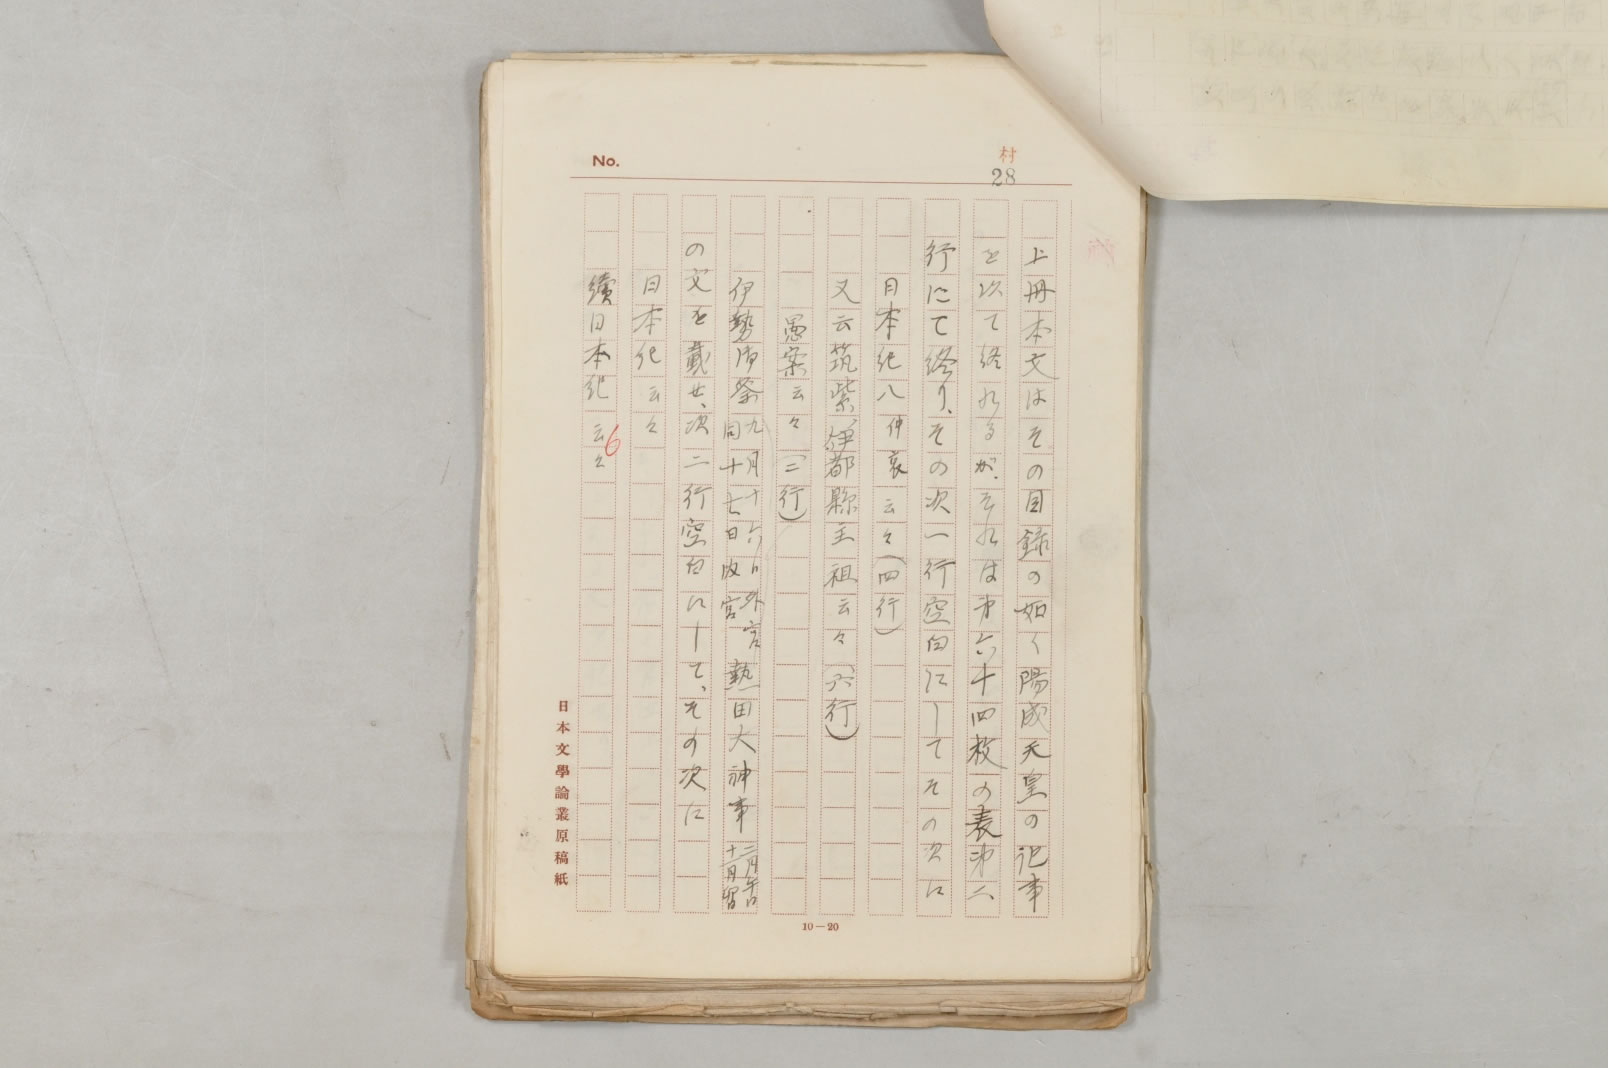 No.
村
28
上冊本文はその目録の如く陽成天皇の記事
を以て終れるが、それは第六十四枚の表第二
行にて終り、その次一行空白にしてその次に
日本紀八仲哀云々(四行)
又云筑紫伊都縣主祖云々(六行)
愚案云々(二行)
伊勢御祭九月十六日外宮同十七日内宮熱田大神事二月午日十一月
の文を載せ、次二行空白にして、その次に
日本紀云々
續日本紀云々
6
日本文學論叢原稿紙
10—20